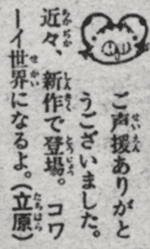 ご声援ありがと
うございました。
近々、新作で登場。コワ
ーイ世界になるよ。(立原)